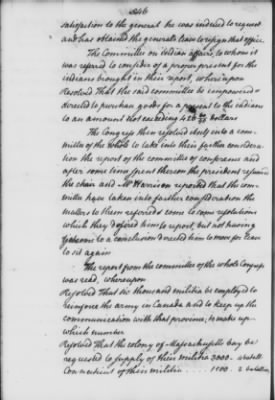 246
satisfaction to the general he was induced to request
and has obtained the generals leave to resign that office.
The Committee on indian affairs, to whom it
was referred to consider of a proper present for the
indians brought in their report, whereupon
Resolved That the said committee be empowered &
directed to purchase goods for a present to the indians
to an amount not exceeding 426 dollars
The Congress then resolved itself into a com-
mittee of the whole to take into their farther considera-
tion the report of the committee of conference and
after some time spent thereon the president resumed
the chair and Mr Harrison reported that the com-
mittee have taken into farther consideration the
matters to them referred & come to some resolutions
which they desired him to report, but not having
come to a conclusion directed him to move for leave
to sit again
The report from the committee of the whole Congress
was read, whereupon
Resolved That six thousand militia be employed to
reinforce the army in Canada and to keep up the
communication with that province; to make up
which number
Resolved That the colony of Massachusetts bay be
requested to supply of their militia 3000.
Connecticut of their militia 1500. 2 battalions